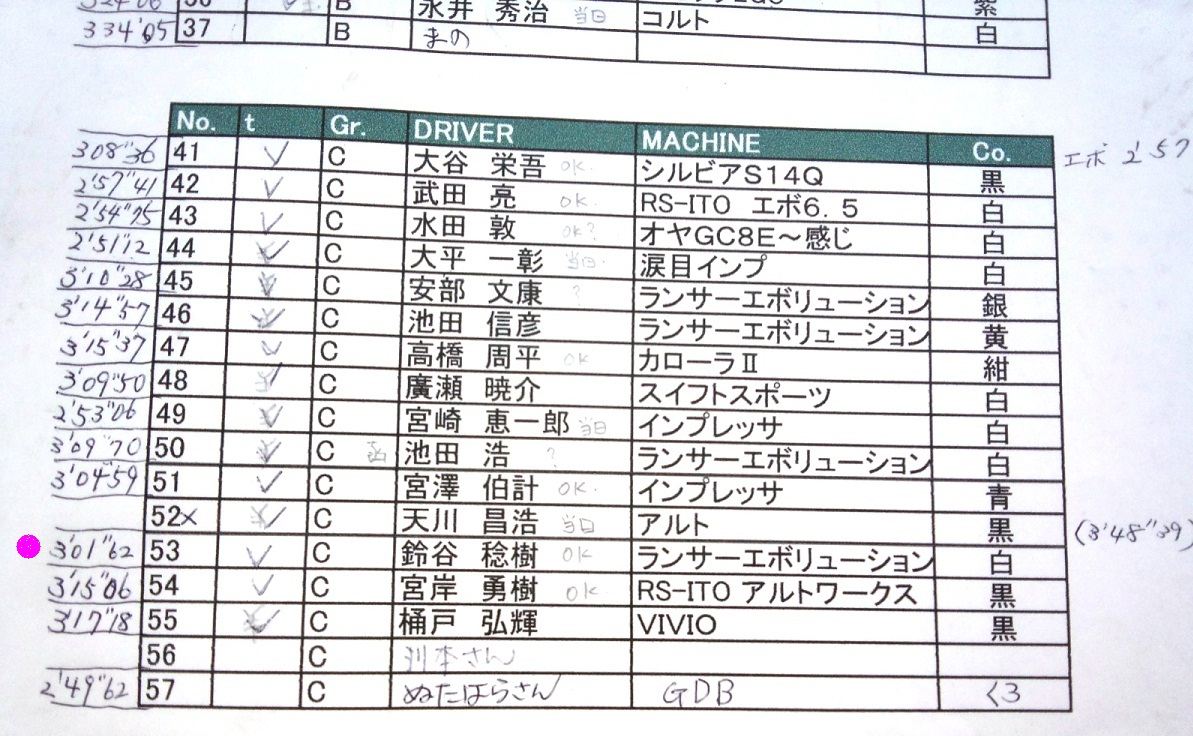 36 B 永井 秀治 当日 コルト 紫
334'05 37 B まの 白
No. t Gr. DRIVER MACHINE Co.
308"36 41 C 大谷 栄吾 OK. シルビアS14Q 黒 エボ 2'57
2'57"41 42 C 武田 亮 OK. RS-ITO エボ6.5 白
2'54"75 43 C 水田 敦 OK? オヤGC8E～感じ 白
2'51"12 44 C 大平 一彰 当日. 涙目インプ 白
3'10"28 45 C 安部 文康 ? ランサーエボリューション 銀
3'14"57 46 C 池田 信彦 ランサーエボリューション 黄
3'15"37 47 C 高橋 周平 OK カローラⅡ 紺
3'09"50 48 C 廣瀬 暁介 スイフトスポーツ 白
2'53"06 49 C 宮崎 恵一郎 当日 インプレッサ 白
3'09"70 50 C 池田 浩 ? ランサーエボリューション 白
3'04"59 51 C 宮澤 伯計 OK. インプレッサ 青
52× C 天川 昌浩 当日 アルト 黒 (3'48"39)
3'01"62 53 C 鈴谷 稔樹 OK ランサーエボリューション 白
3'15"06 54 C 宮岸 勇樹 OK RS-ITO アルトワークス 黒
3'17"18 55 C 桶戸 弘輝 VIVIO 黒
56 C 川本さん
2'49"62 57 C ぬたはらさん GDB くろ